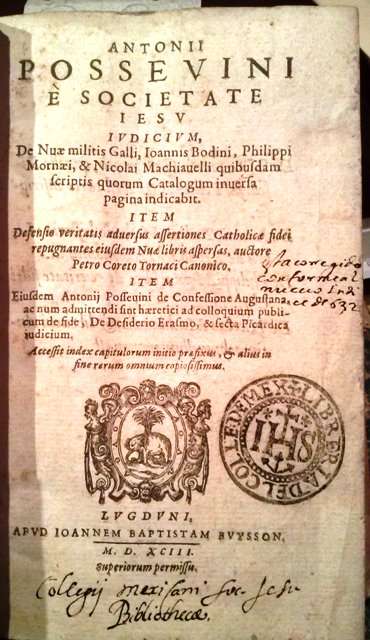 ANTONII
POSSEVINI
È SOCIETATE
IESV
IVDICIVM,
De Nuæ militis Galli, Ioannis Bodini, Philippi
Mornæi, & Nicolai Machiauelli quibusdam
scriptis quorum Catalogum inuersa
pagina indicabit.
ITEM
Defensio veritatis aduersus assertiones Catholicæ fidei
repugnantes eiusdem Nuæ libris aspersas, auctore
Petro Coreto Tornaci Canonico.
ITEM
Eiusdem Antonij Posseuini de Confessione Augustana,
ac num admittendi sint hæretici ad colloquium publi-
cum de fide, De Desiderio Erasmo, & secta Picardica
iudicium.
Accessit index capitulorum initio præfixus, & alius in
fine rerum omnium copiosissimus.
esta corregido
conforme al
nueuo Indi
ce de 632
LIBRERIA DEL COLL DE MEX
IHS
LVGDVNI,
APVD IOANNEM BAPTISTAM BVYSSON,
M. D. XCIII.
Superiorum permissu.
Collegij mexicani soc. Jesu
Bibliothecæ.